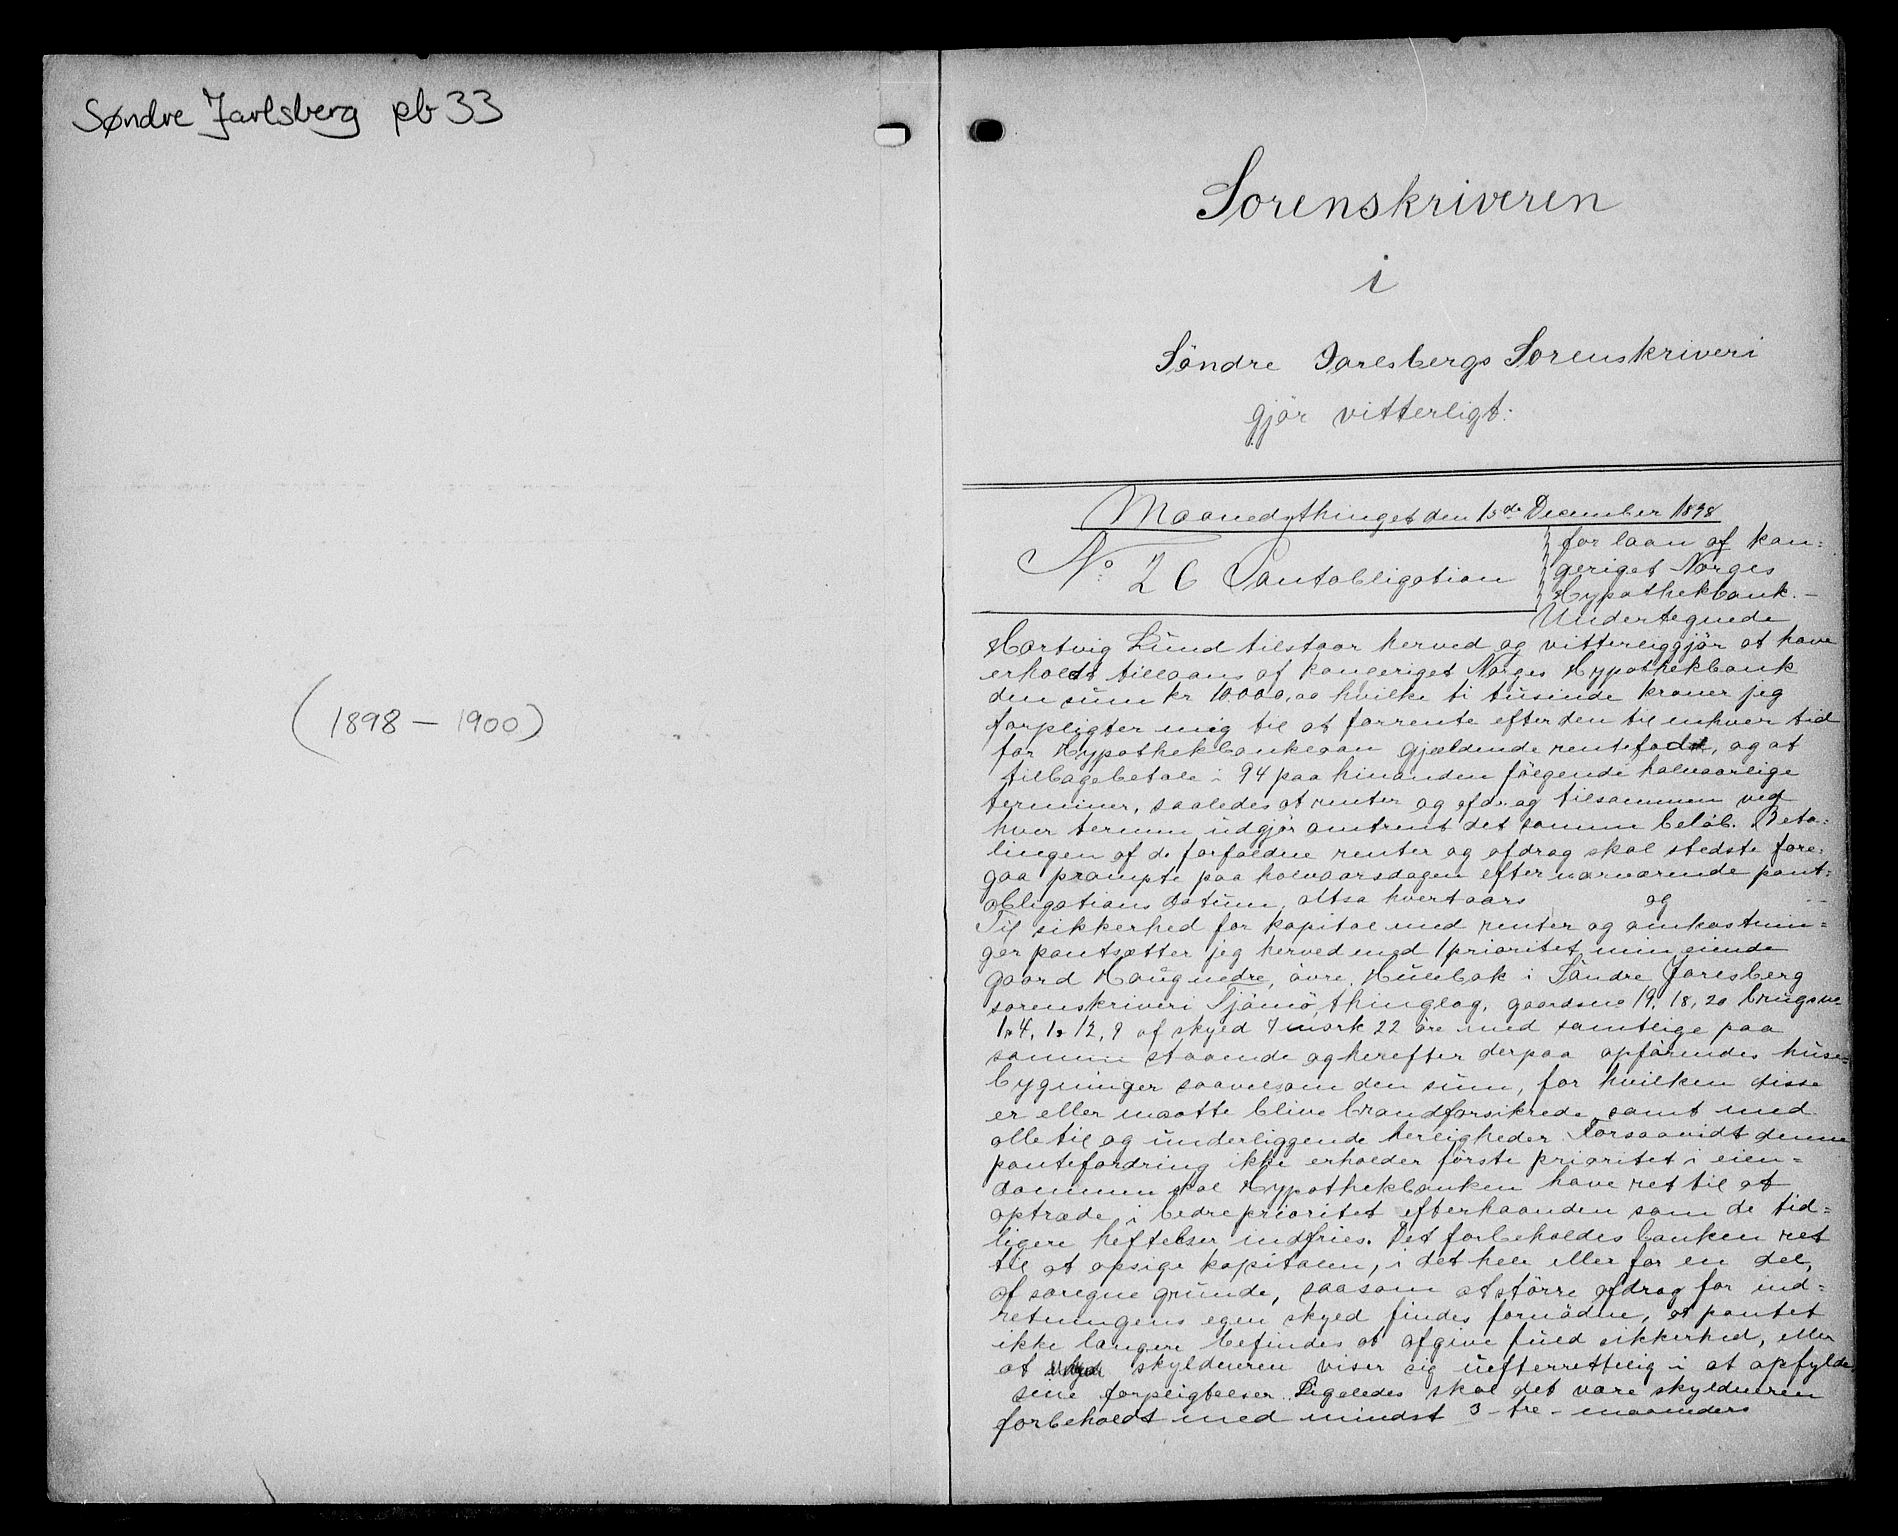 Søndre Jarlsberg pb 33
(1898 – 1900)
Sorenskriveren
i
Söndre Jarlsbergs Sorenskriveri
gjör vitterligt:
Maanedsthinget den 15de December 1898
No. 26 Pantobligation
for laan af kon=
geriget Norges
Hypothekbank. –
Undertegnede
Hartvig Lund tilstaar herved og vitterliggjör at have
erholdt tillaans af kongeriget Norges Hypothekbank
den sum kr 10.000,00 hvilke ti tusinde kroner jeg
forpligter mig til at forrente efter den til enhver tid
for Hypothekbanklaan gjældende rentefod, og at
tilbagebetale i 94 paa hinanden fölgende halvaarlige
terminer, saaledes at renter og afdrag tilsammen ved
hver termin udgjör omtrent det samme belöb. Beta=
lingen af de forfaldne renter og afdrag skal stedste fore=
gaa prompte paa halvaarsdagen efter nærværende pant=
obligations datum, altsa hvert aars og
Til sikkerhed for kapital med renter og omkostnin=
ger pantsætter jeg herved med 1 prioritet min eiende
gaard Haug nedre, övre, Hulebak i Söndre Jarlsberg
sorenskriveri Tjömö thinglag, gaardsno 19, 18, 20 brugsno
1, 4, 1, 12, 9 af skyld 7 mark 22 öre med samtlige paa
samme staaende og herefter derpaa opförendes huse=
bygninger saavelsom den sum, for hvilken disse
er eller maatte blive brandforsikrede samt med
alle til og underliggende herligheder. Forsaavidt denne
pantefordring ikke erholder förste prioritet i eien=
dommen skal Hypothekbanken have ret til at
optræde i bedre prioritet efterhaanden som de tid=
ligere heftelser indfries. Det forbeholdes banken ret
til at opsige kapitalen, i det hele eller for en del,
af særegne grunde, saasom at större afdrag for ind=
retningens egen skyld findes fornödne, at pantet
ikke længere befindes at afgive fuld sikkerhed, eller
at skylderen viser sig uefterrettelig i at opfylde
sine forpligtelser. Ligeledes skal det være skylderen
forbeholdt med mindst 3 – tre – maaneders